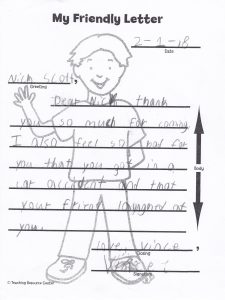 My Friendly Letter
2-1-18
Date
Nick Scott,
Greeting
Dear Nick thank
you so much for coming
I also feel so bad for
you that you got in a
car accident and that
your friend laughed at
you.
Body
love, Vince,
Closing
Signature
© Teaching Resource Center